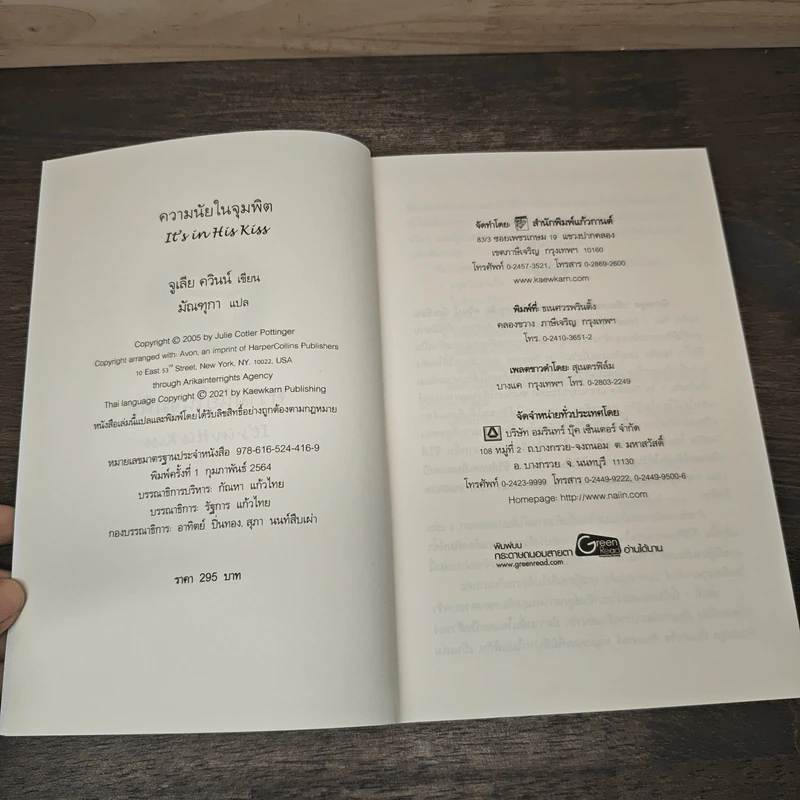 ความนัยในจุมพิต
It's in His Kiss
จูเลีย ควินน์ เขียน
มัณฑุกา แปล
Copyright © 2005 by Julie Cotler Pottinger
Copyright arranged with: Avon, an imprint of HarperCollins Publishers
10 East 53rd Street, New York, NY. 10022, USA
through Arikainterrights Agency
Thai language Copyright © 2021 by Kaewkarn Publishing
หนังสือเล่มนี้แปลและพิมพ์โดยได้รับลิขสิทธิ์อย่างถูกต้องตามกฎหมาย
หมายเลขมาตรฐานประจำหนังสือ 978-616-524-416-9
พิมพ์ครั้งที่ 1 กุมภาพันธ์ 2564
บรรณาธิการบริหาร: กัณหา แก้วไทย
บรรณาธิการ: รัฐการ แก้วไทย
กองบรรณาธิการ: อาทิตย์ ปิ่นทอง, สุภา นนท์สืบเผ่า
ราคา 295 บาท
จัดทำโดย: สำนักพิมพ์แก้วกานต์
83/3 ซอยเพชรเกษม 19 แขวงปากคลอง
เขตภาษีเจริญ กรุงเทพฯ 10160
โทรศัพท์ 0-2457-3521, โทรสาร 0-2869-2600
www.kaewkarn.com
พิมพ์ที่: ธเนศวรพรินติ้ง
คลองขวาง ภาษีเจริญ กรุงเทพฯ
โทร. 0-2410-3651-2
เพลตขาวดำโดย: สุเนตรฟิล์ม
บางแค กรุงเทพฯ โทร. 0-2803-2249
จัดจำหน่ายทั่วประเทศโดย
บริษัท อมรินทร์ บุ๊ค เซ็นเตอร์ จำกัด
108 หมู่ที่ 2 ถ.บางกรวย-จงถนอม ต. มหาสวัสดิ์
อ. บางกรวย จ. นนทบุรี 11130
โทรศัพท์ 0-2423-9999 โทรสาร 0-2449-9222, 0-2449-9500-6
Homepage: http://www.naiin.com
พิมพ์บน
กระดาษถนอมสายตา Green Read อ่านได้นาน
www.greenread.com